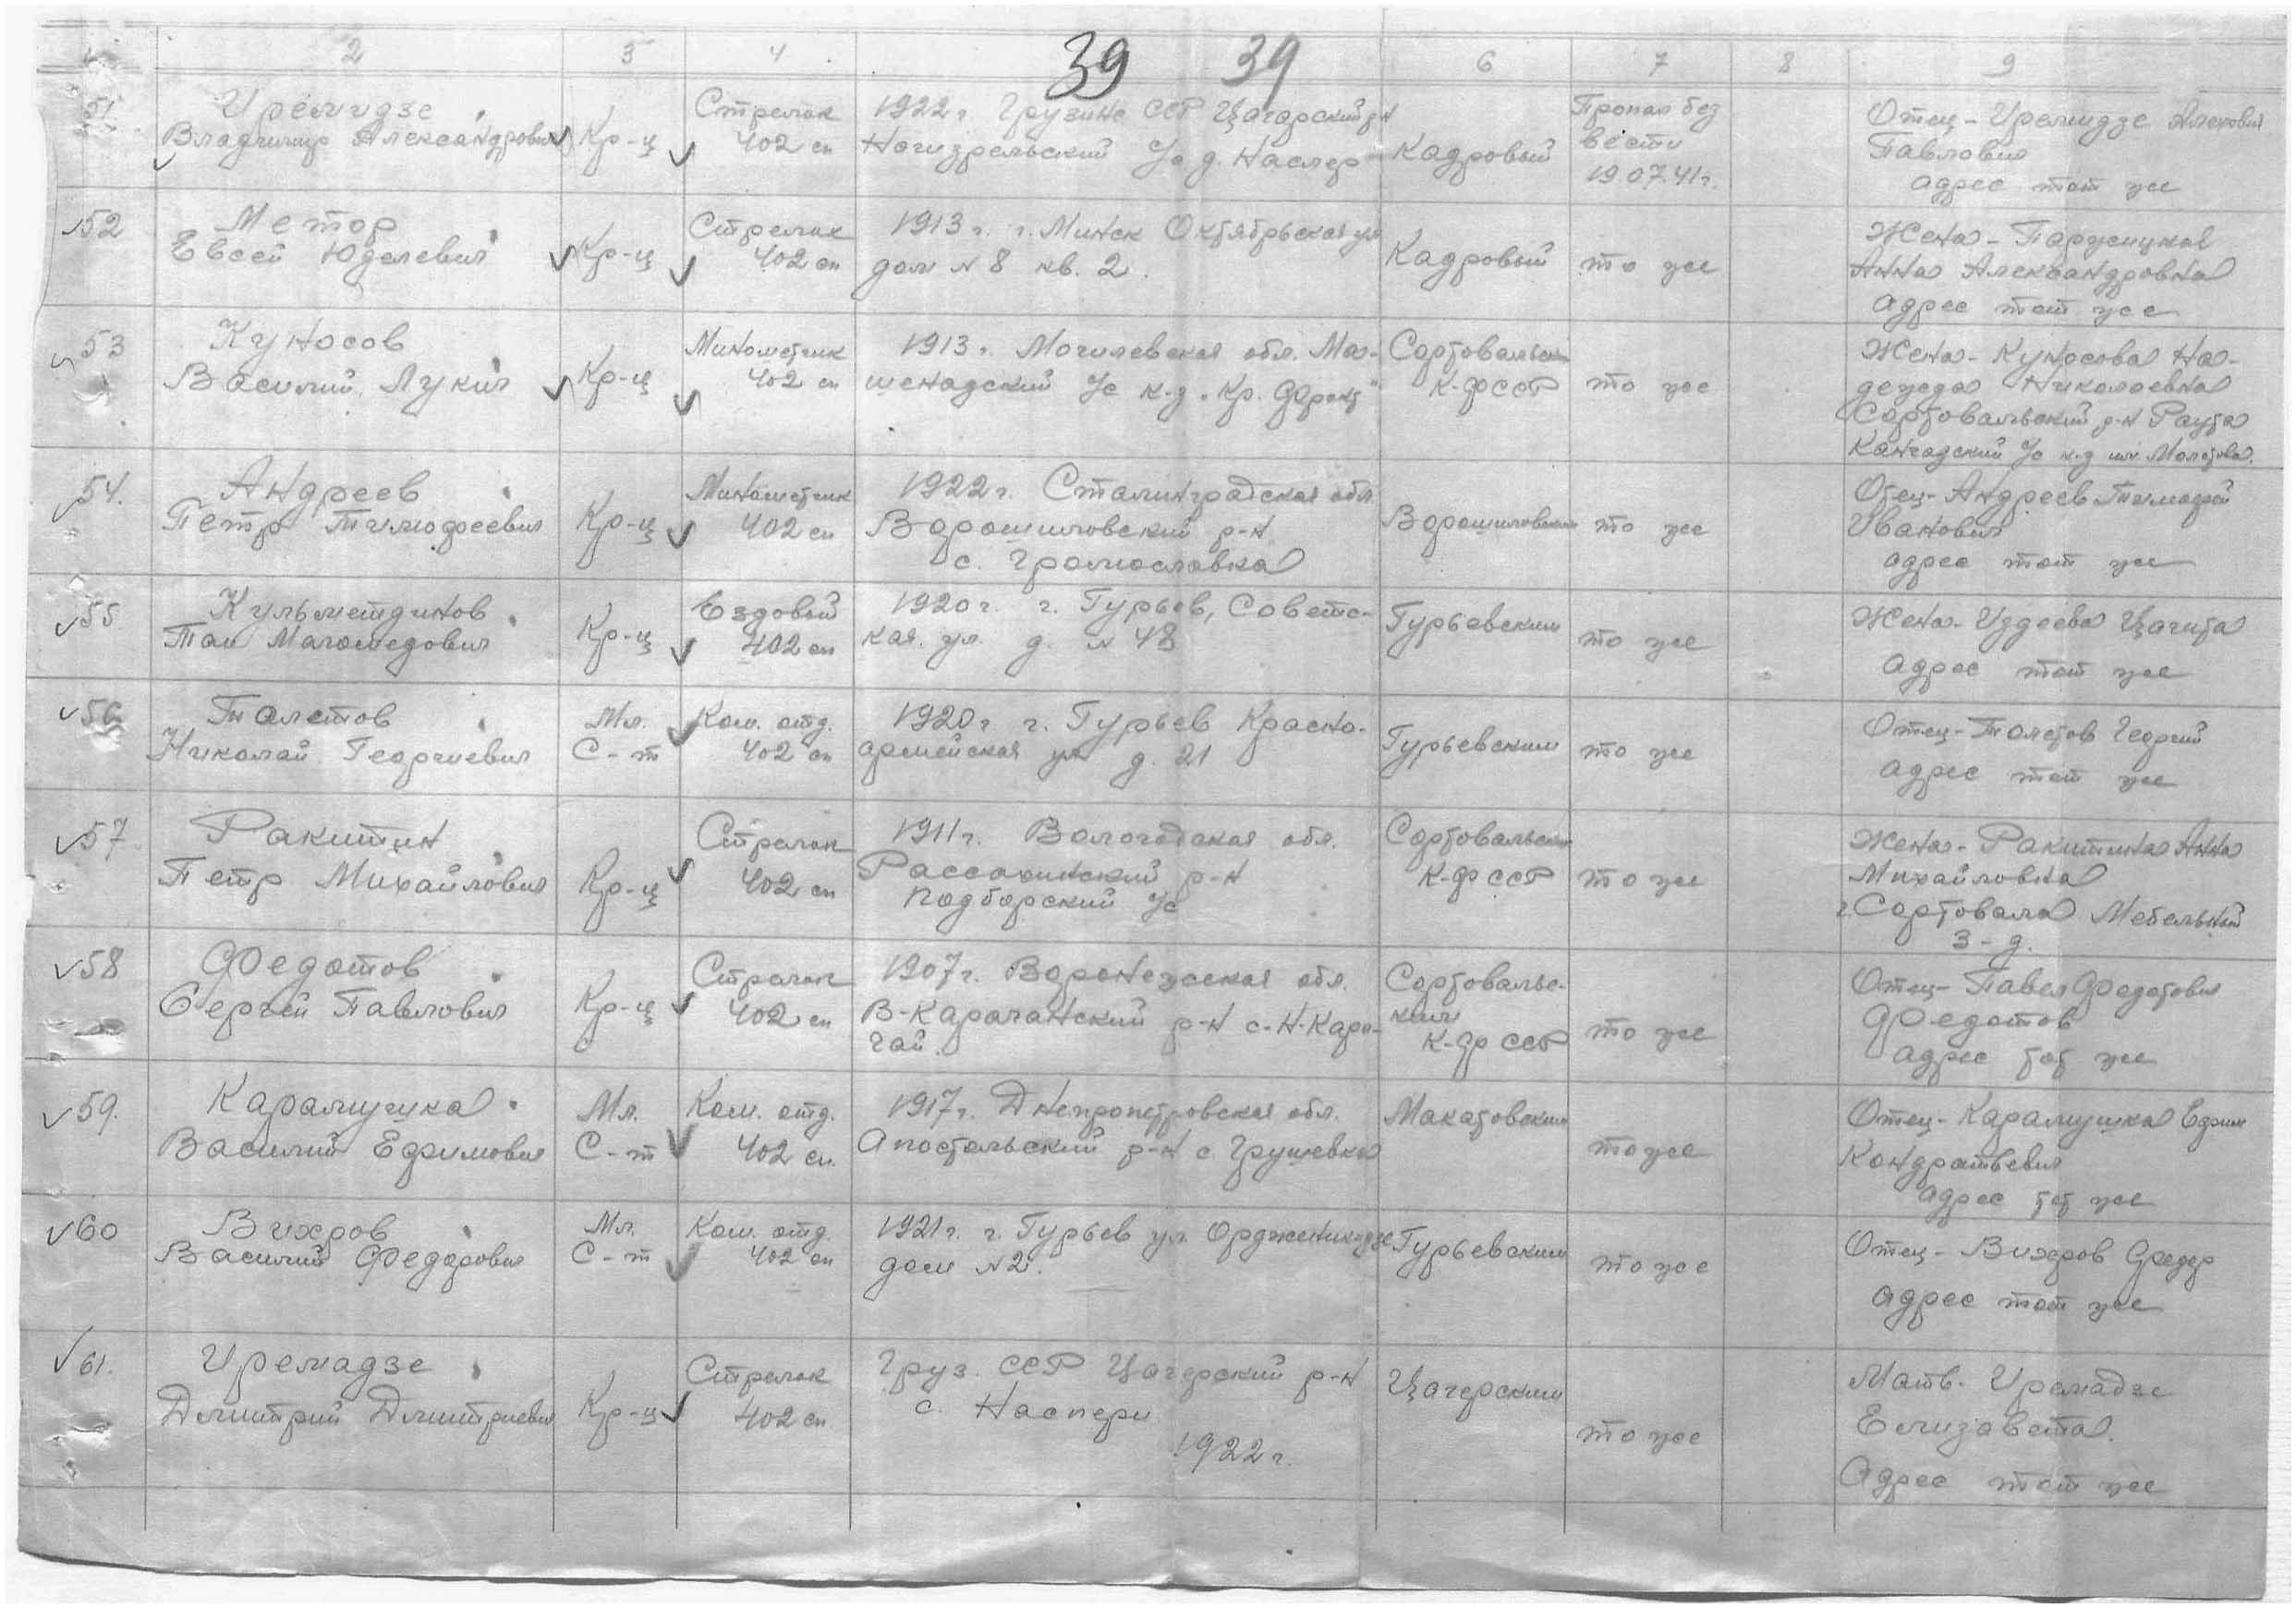 39 39
2 3 4 6 7 8 9
51.
Иремидзе
Владимир Александрович
Кр-ц
Стрелок
402 сп
1922 г. Грузинс ССР Цагарский р-н
Нагизрельский с/с д. Наспер
Кадровый
Пропал без
вести
19.07.41 г.
Отец - Иремидзе
Павлович
адрес тот же
52
Метор
Евсей Юделевич
Кр-ц
Стрелок
402 сп
1913 г. г. Минск Октябрьская ул
дом N 8 кв. 2.
Кадровый
то же
Жена -
Анна Александровна
адрес тот же
53
Куносов
Василий Лукич
Кр-ц
Минометчик
402 сп
1913 г. Могилевская обл. Ма-
шенадский с/с к-д „Кр. Фронт"
Сортовальск
К-Ф ССР
то же
Жена - Куносова На-
дежда Николаевна
Сортовальский р-н Раута
Кангадский с/с к-д им Молотова.
54.
Андреев
Петр Тимофеевич
Кр-ц
Минометчик
402 сп
1922 г. Сталинградская обл
Ворошиловский р-н
с. Громославка
Ворошиловским
то же
Отец - Андреев Тимофей
Иванович
адрес тот же
55
Кульметдинов
Таи Магомедович
Кр-ц
Ездовой
402 сп
1920 г. г. Гурьев, Советс-
кая. ул. д. N 48
Гурьевским
то же
Жена - Издеева Цагида
адрес тот же
56
Талетов
Николай Георгиевич
Мл.
С-т
Ком. отд.
402 сп
1920 г г. Гурьев Красно-
армейская ул д. 21
Гурьевским
то же
Отец - Талетов Георгий
адрес тот же
57
Ракитин
Петр Михайлович
Кр-ц
Стрелок
402 сп
1911 г. Вологодская обл.
Рассохинский р-н
Подборский с/с
Сортовальск
К-Ф ССР
то же
Жена - Ракитина Анна
Михайловна
г. Сортовала Мебельный
З-д.
58
Федотов
Сергей Павлович
Кр-ц
Стрелок
402 сп
1907 г. Воронежская обл.
В-Карачанский р-н с-Н-Кара-
чай.
Сортовальс-
ким
К-Ф ССР
то же
Отец - Павел Федотович
Федотов
адрес тот же
59.
Карамушка
Василий Ефимович
Мл.
С-т
Ком. отд.
402 сп.
1917 г. Днепропетровская обл.
Апостольский р-н с. Грушевка
Макатовским
то же
Отец - Карамушка Ефим
Кондратьевич
адрес тот же
60
Вихров
Василий Федорович
Мл.
С-т
Ком. отд.
402 сп
1921 г. г. Гурьев ул. Орджоникидзе
дом N 2.
Гурьевским
то же
Отец - Вихров Федор
адрес тот же
61.
Иремадзе
Дмитрий Дмитриевич
Кр-ц
Стрелок
402 сп
Груз. ССР Цагерский р-н
с. Наспери
1922 г.
Цагерским
то же
Мать - Иремадзе
Елизавета.
Адрес тот же